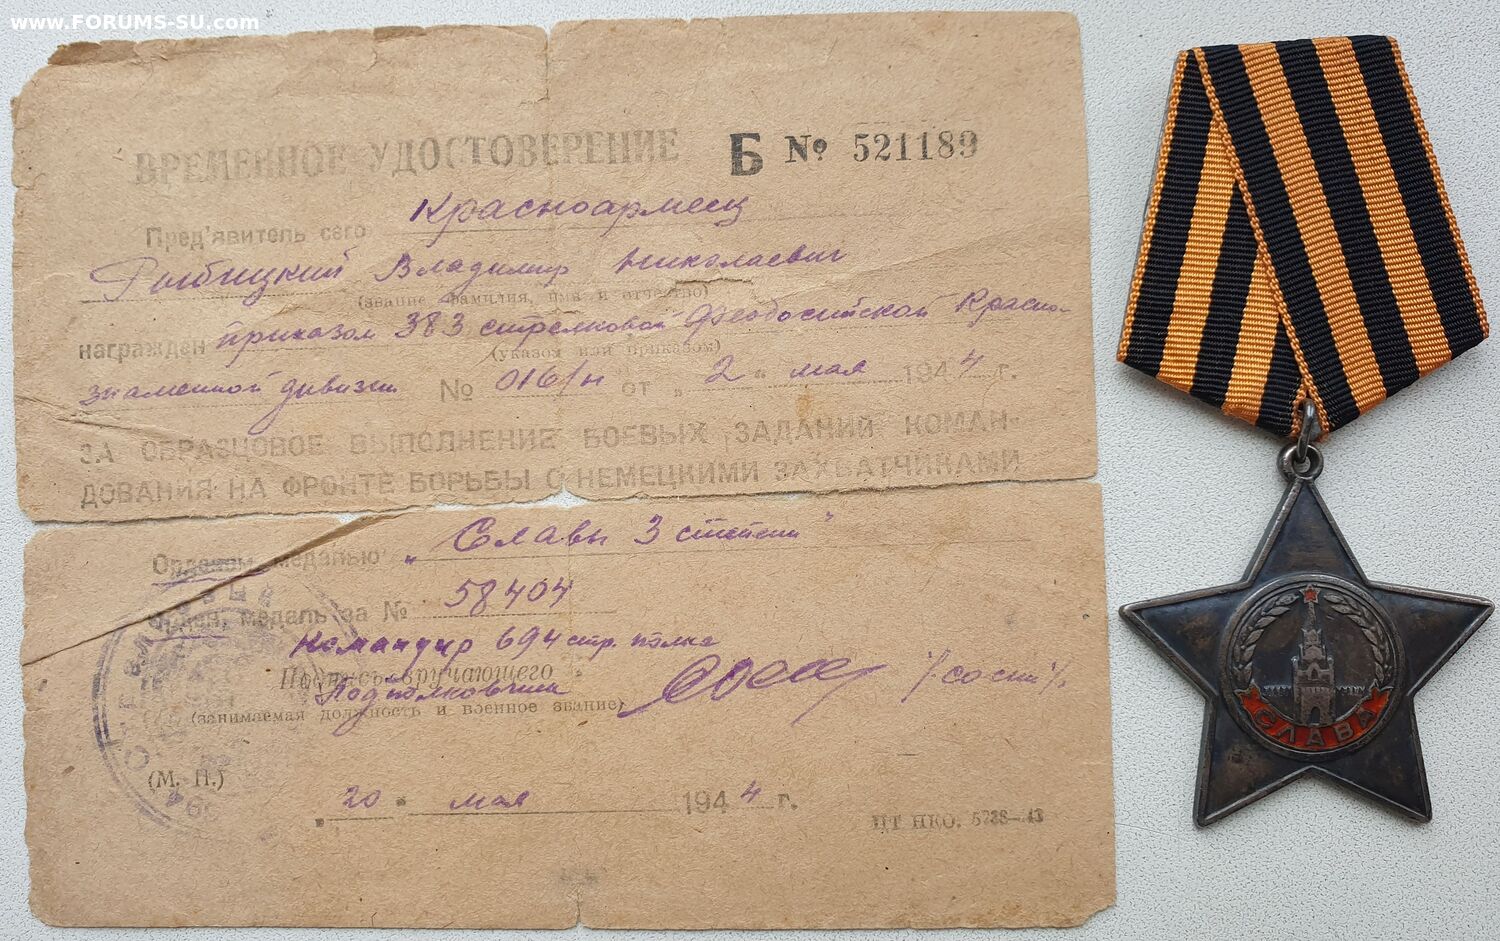 www.FORUMS-SU.com
ВРЕМЕННОЕ УДОСТОВЕРЕНИЕ Б № 521189
Пред'явитель сего Красноармеец
Рыбицкий Владимир Николаевич
(звание фамилия, имя и отчество)
награжден приказом 383 стрелковой Феодосийской Красно-
(указом или приказом)
знаменной дивизии № 016/н от 2 " мая 1944 г.
ЗА ОБРАЗЦОВОЕ ВЫПОЛНЕНИЕ БОЕВЫХ ЗАДАНИЙ КОМАН-
ДОВАНИЯ НА ФРОНТЕ БОРЬБЫ С НЕМЕЦКИМИ ЗАХВАТЧИКАМИ
Орденом, медалью „Славы 3 степени"
Орден, медаль за № 58404
Командир 694 стр. полка
Подпись вручающего
Подполковник
(занимаемая должность и военное звание)
(М. П.)
" 20 " мая 1944 г.
ЦТ НКО.
СЛАВА